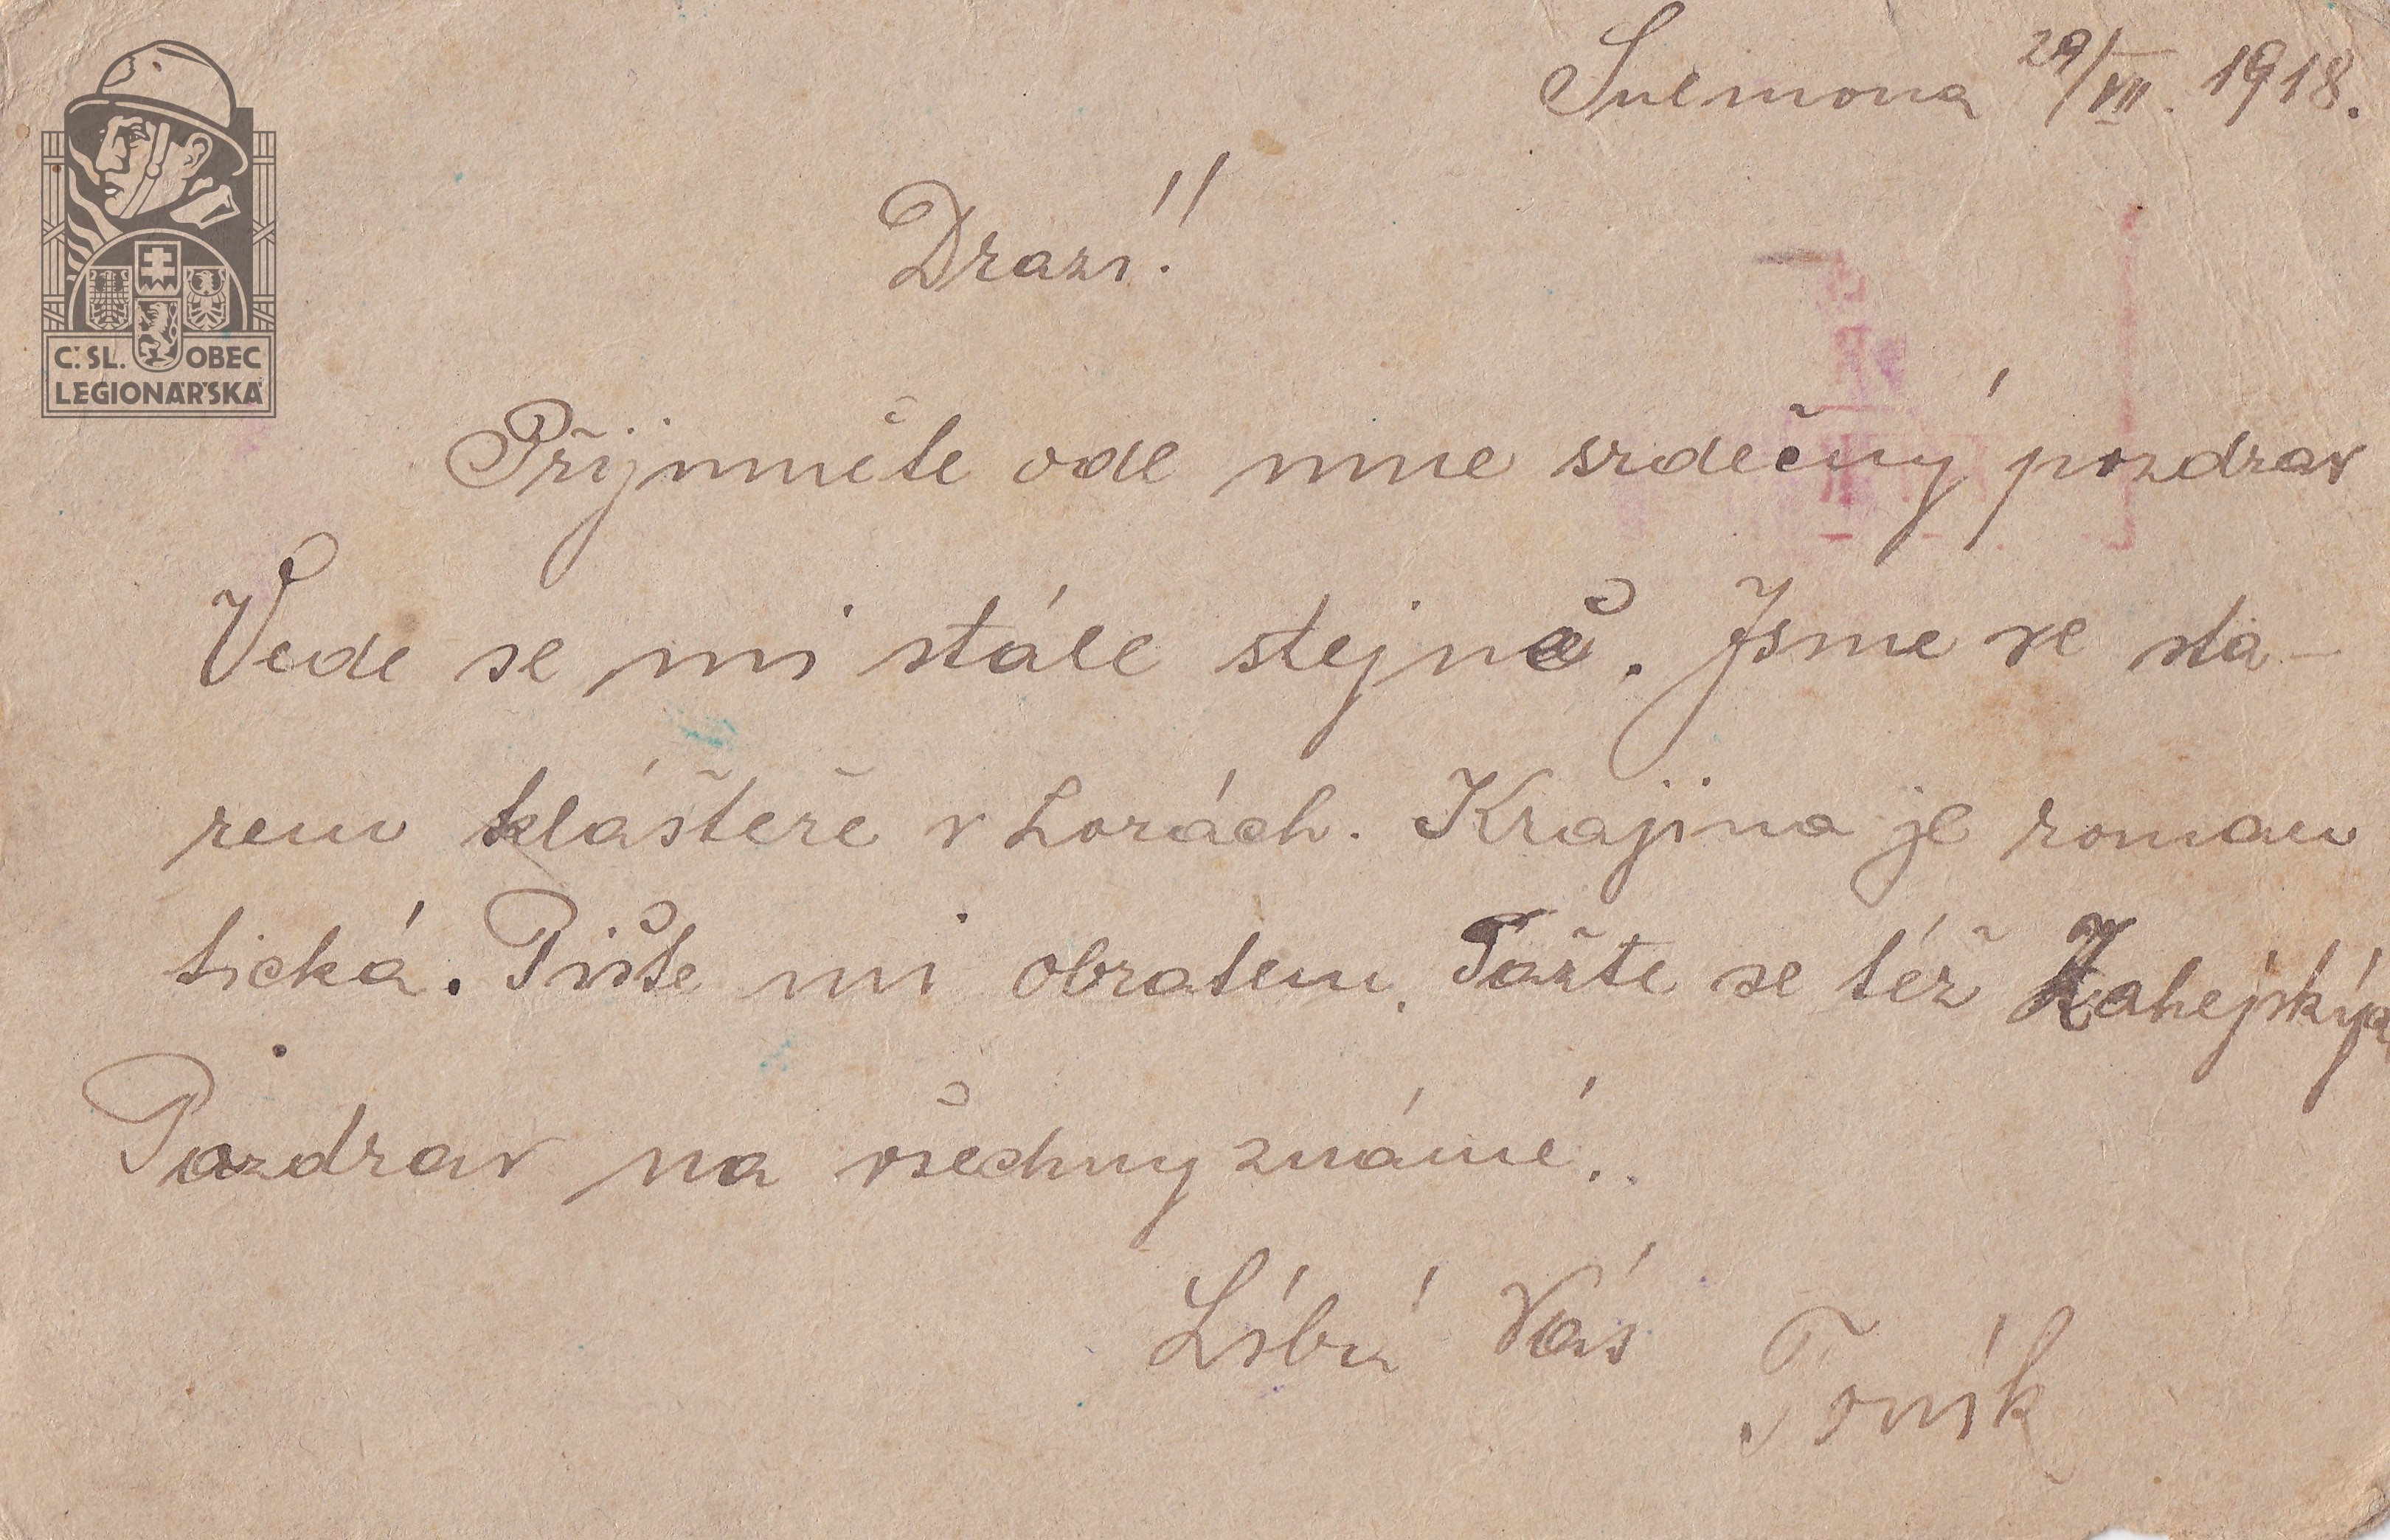 Sulmona 29/VII. 1918.
Drazí!!
Přijmněte ode mne srdečný pozdrav
Vede se mi stále stejně. Jsme ve sta-
rem klášteře v horách. Krajina je roman
tická. Pište mi obratem. Tažte se též Zahejských
Pozdrav na všechny známé.
Líbá Vás
Toník
Č. SL. OBEC
LEGIONÁŘSKÁ